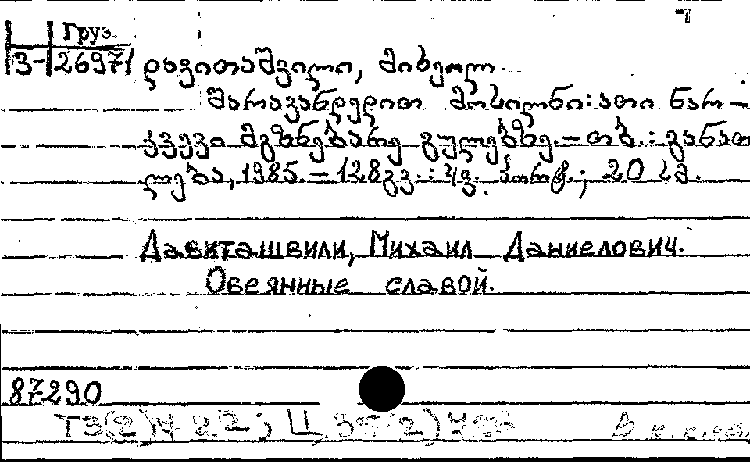 Груз.
3- 26971
დავითაშვილი, მიხეილ.
შარავანდედით მოსილნი: ათი ნარ-
კვევი მგზნებარე გულებზე. – თბ.: განათ
ლება, 1985. – 128 გვ.: 4 ფ. პორტ.; 20 სმ.
Давиташвили, Михаил Даниелович.
Овеянные славой.
87-290